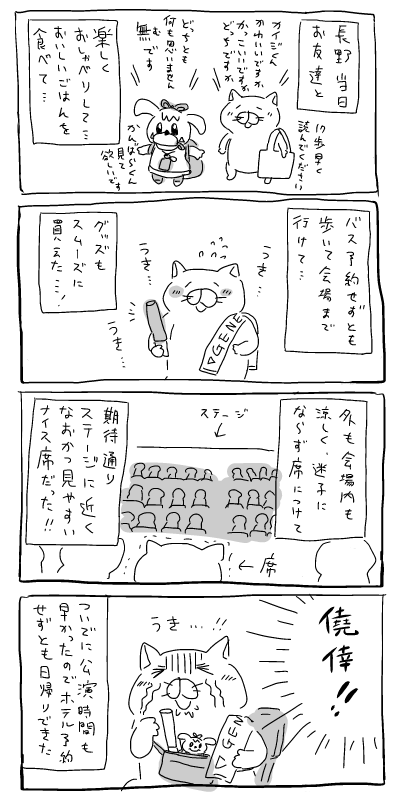 長野当日
お友達と
カイジくん
かわいいですか
かっこいいですか
どっちですか
どっちとも
何も思いません
むです
無
楽しく
おしゃべりして…
おいしいごはんを
食べて…
1時間早く
読んでください
がんばるくん
見て
欲しいです
バス予約せずとも
歩いて会場まで
行けて…
うき…
うき…
うき…
グッズも
スムーズに
買えた…!
GENE
外も会場内も
涼しく、迷子に
ならず席につけて
ステージ
期待通り
ステージに近く
なおかつ見やすい
ナイス席だった!!
←席
僥倖!!
うき…!!
GEN
ついでに公演時間も
早かったのでホテル予約
せずとも日帰りできた